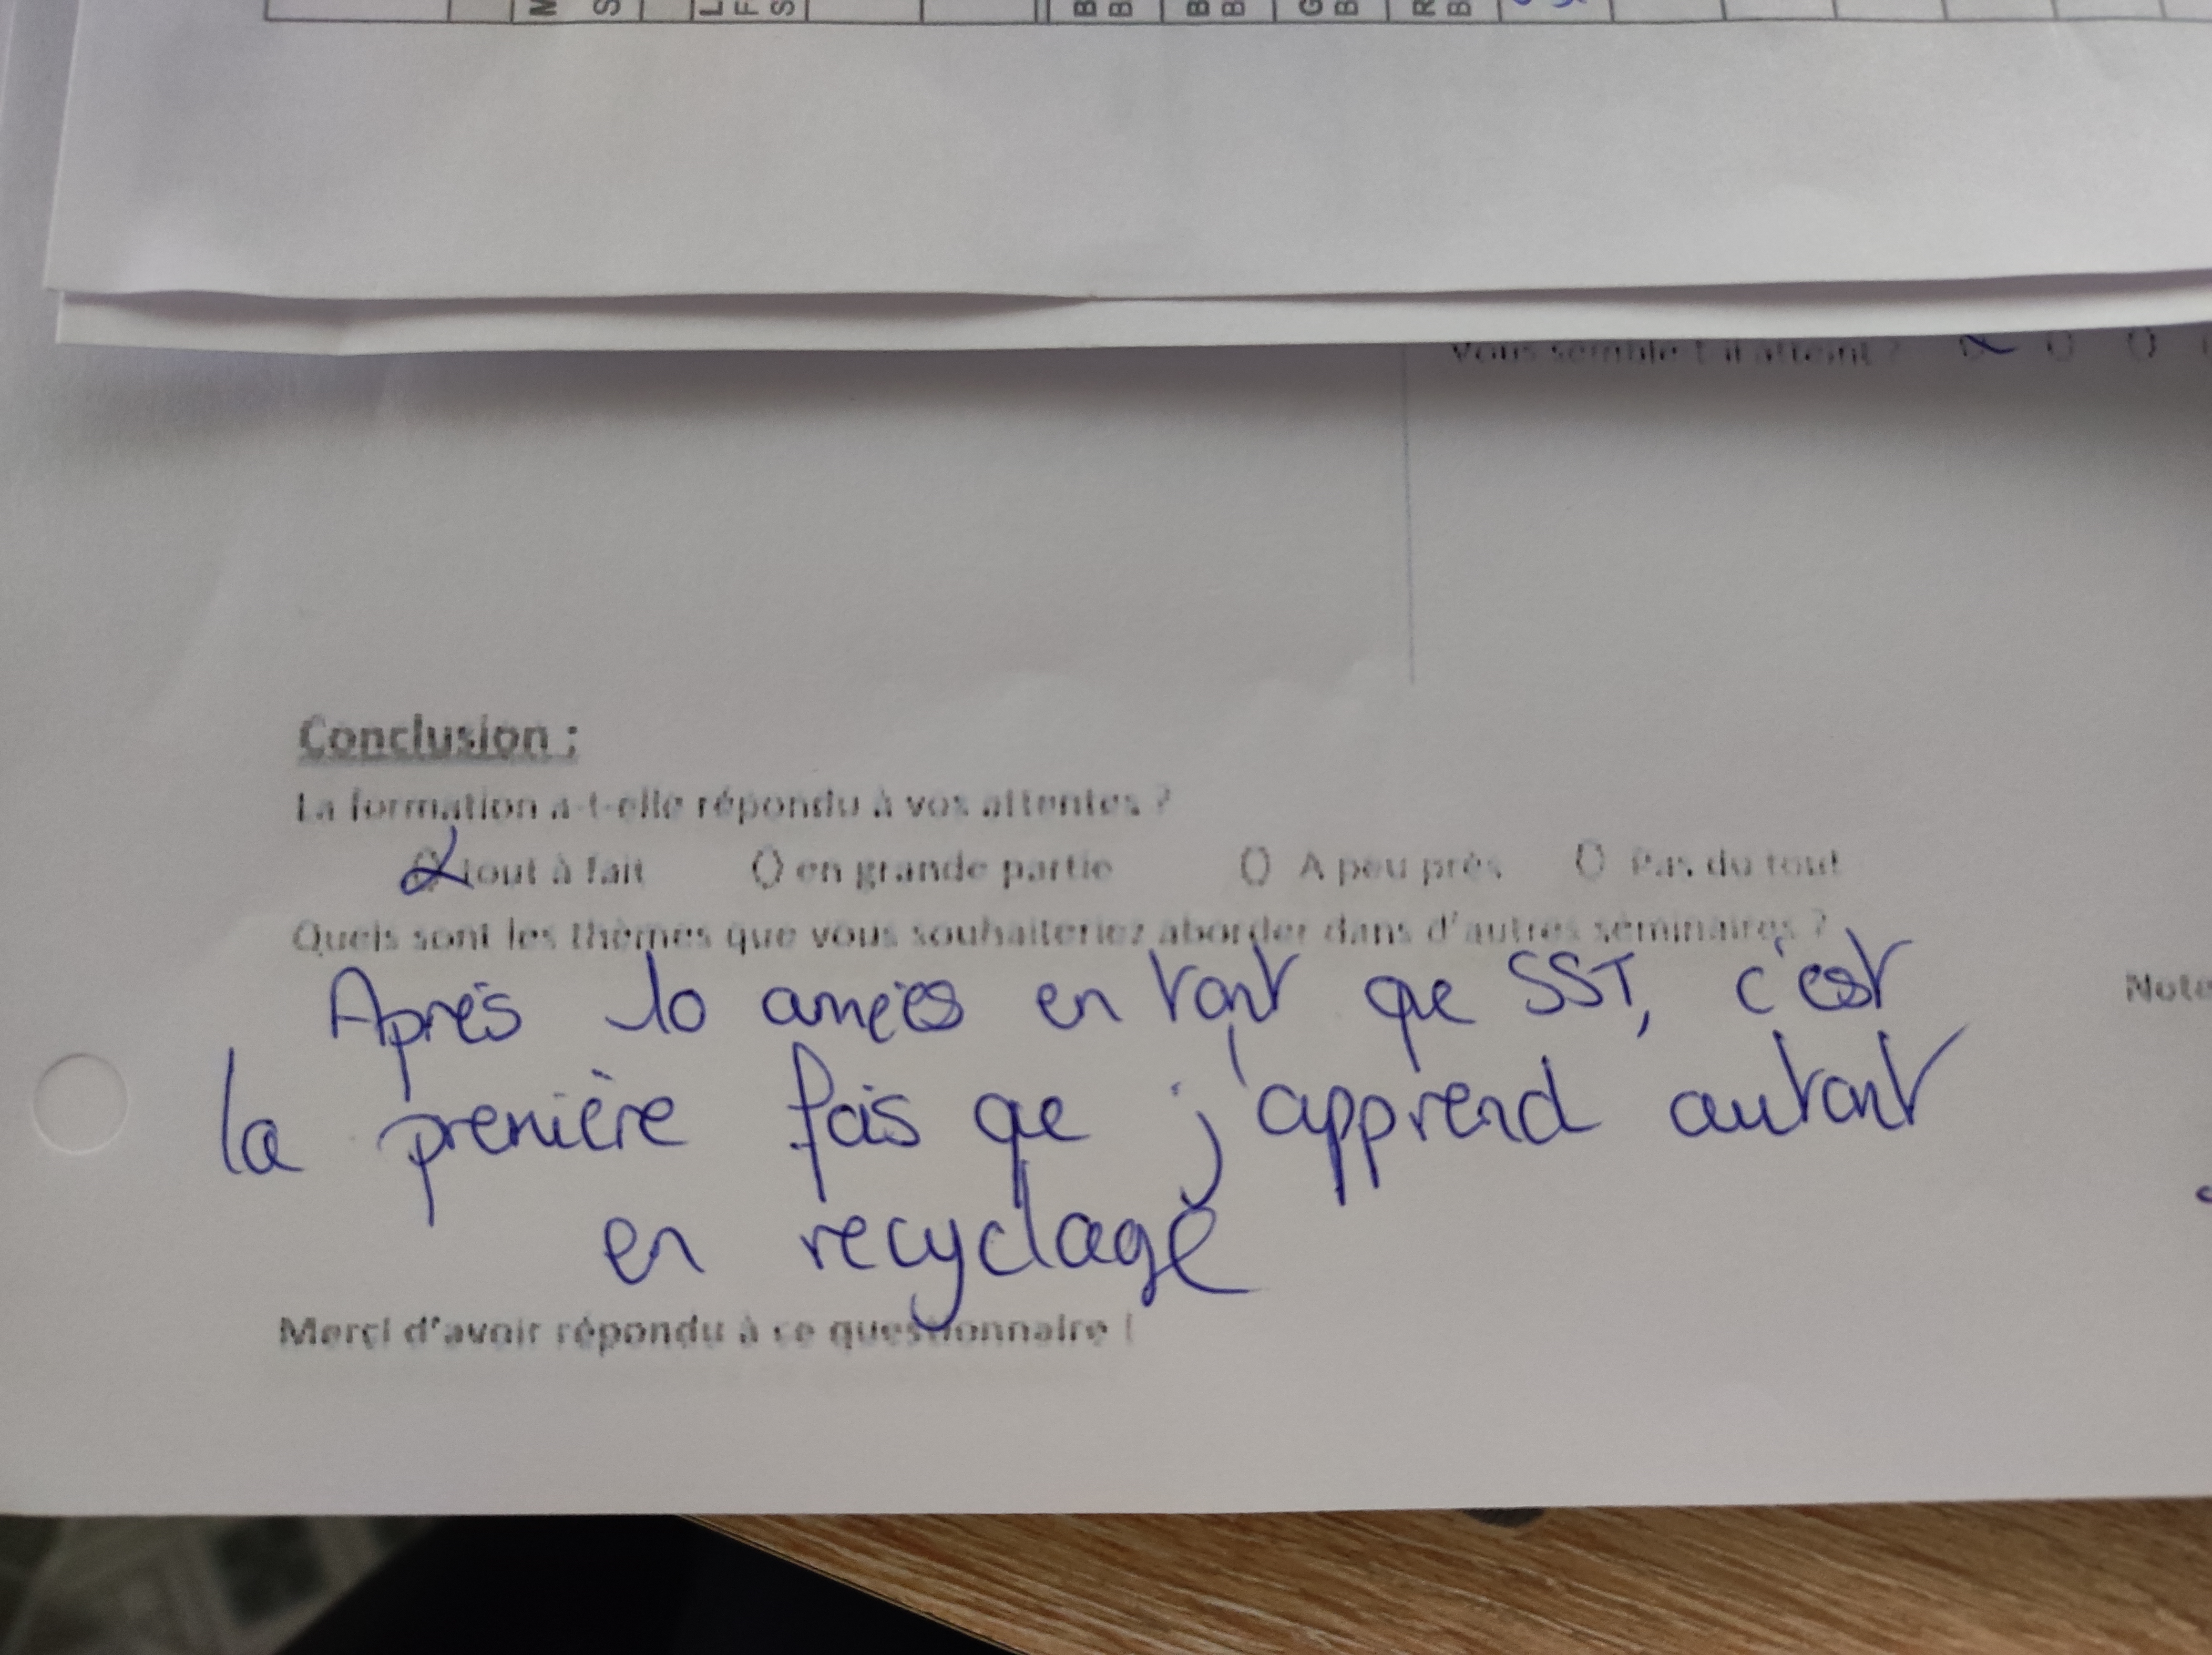 M S L F S B B B B G B R B
Vous semble t il atteint ?
Conclusion :
La formation a-t-elle répondu à vos attentes ?
tout à fait O en grande partie O A peu près O Pas du tout
Quels sont les thèmes que vous souhaiteriez aborder dans d'autres séminaires ?
Après 10 années en tant que SST, c'est
la première fois que j'apprend autant
en recyclage
Note
Merci d'avoir répondu à ce questionnaire !